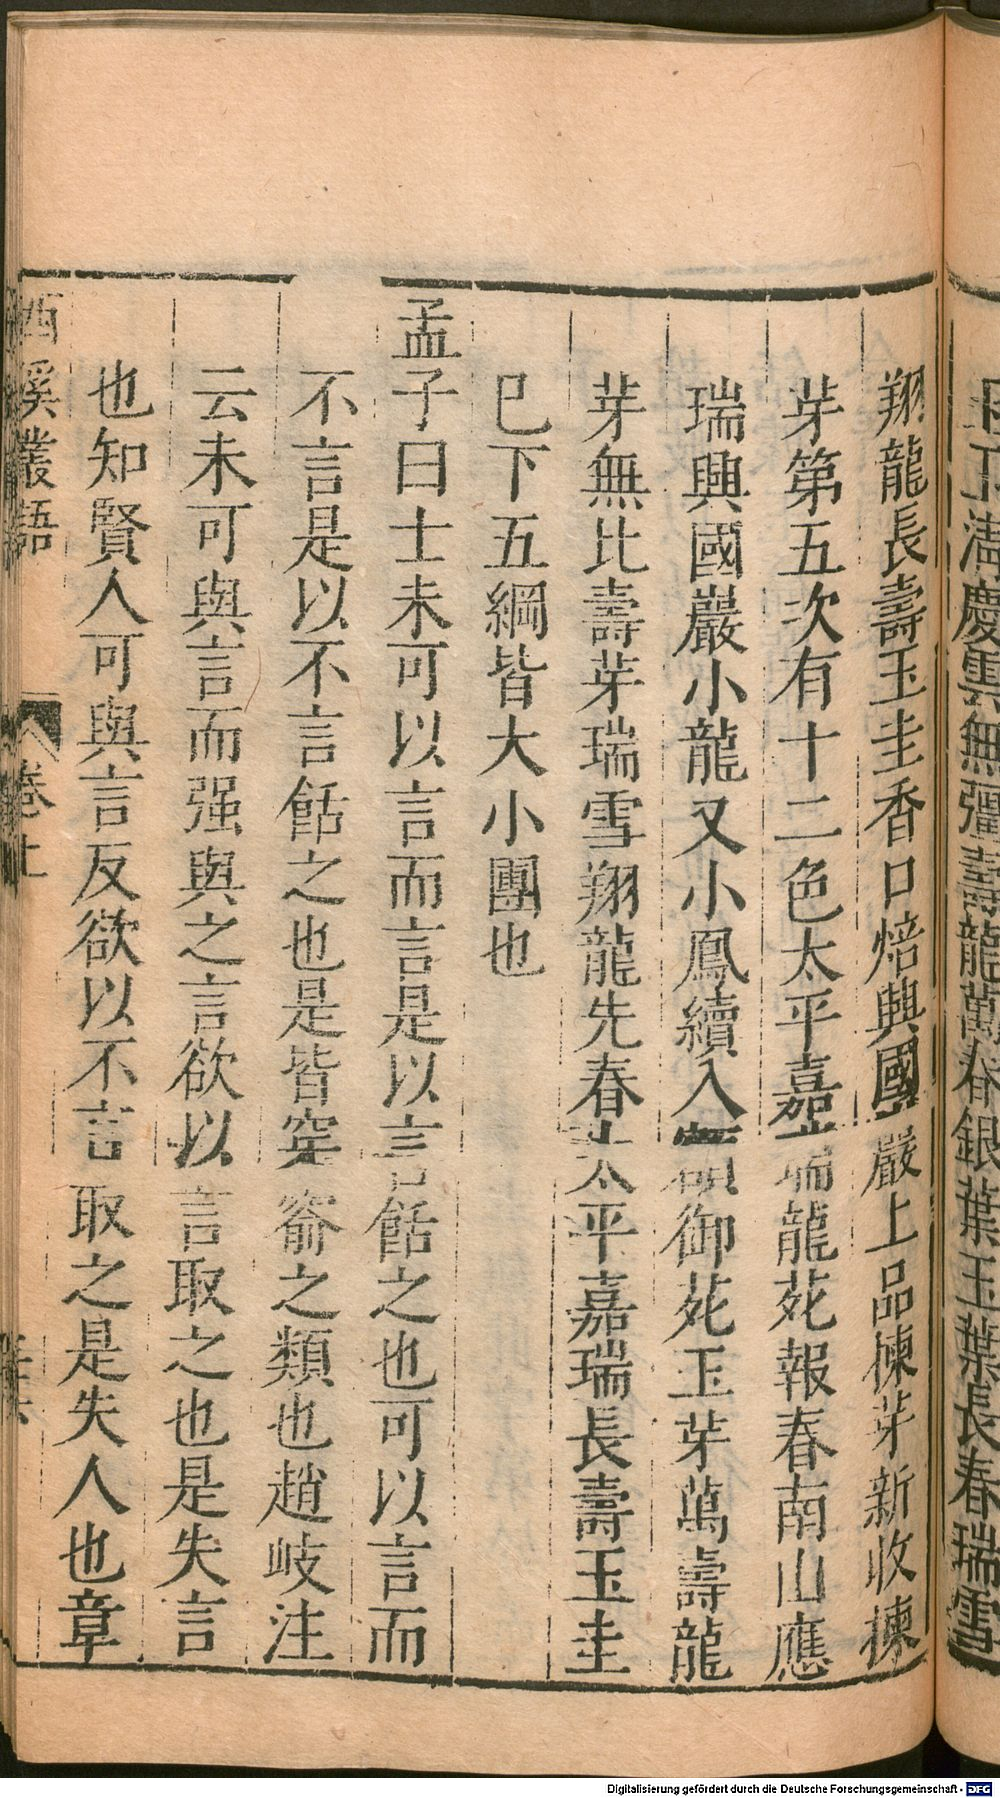 日丁淸慶雲無彊壽龍萬春銀葉玉葉長春瑞雪
翔龍長壽玉圭香口焙興國巖上品揀芽新收揀
芽第五次有十二色太平嘉瑞龍苑報春南山應
瑞興國巖小龍又小鳳續入額御苑玉芽萬壽龍
芽無比壽芽瑞雪翔龍先春太平嘉瑞長壽玉圭
巳下五綱皆大小團也
孟子曰士未可以言而言是以言餂之也可以言而
不言是以不言餂之也是皆穿窬之類也趙岐注
云未可與言而强與之言欲以言取之也是失言
也知賢人可與言反欲以不言取之是失人也章
西溪叢語 卷上
Digitalisierung gefördert durch die Deutsche Forschungsgemeinschaft - DFG